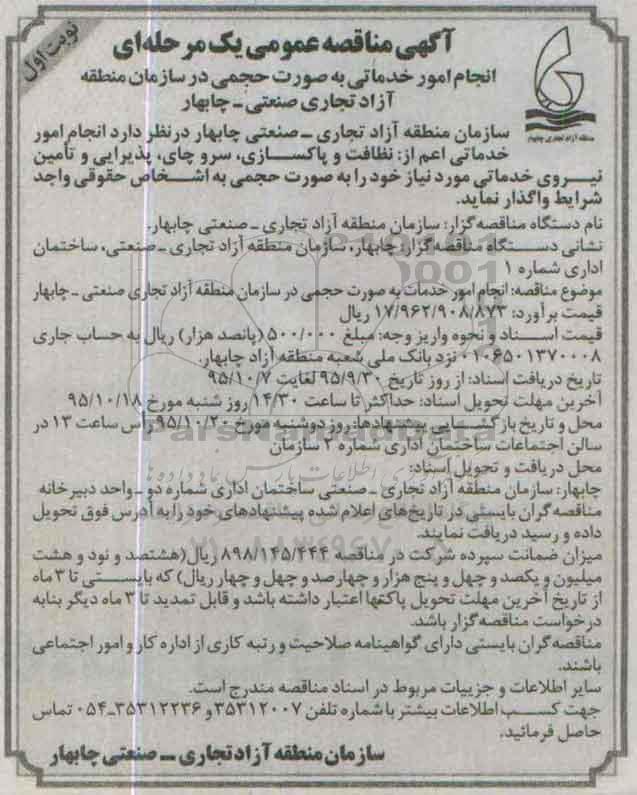 نوبت اول
آگهی مناقصه عمومی یک مرحله‌ای
انجام امور خدماتی به صورت حجمی در سازمان منطقه
آزاد تجاری صنعتی ـ چابهار
منطقه آزاد تجاری چابهار
سازمان منطقه آزاد تجاری ـ صنعتی چابهار درنظر دارد انجام امور
خدماتی اعم از: نظافت و پاکسازی، سرو چای، پذیرایی و تأمین
نیروی خدماتی مورد نیاز خود را به صورت حجمی به اشخاص حقوقی واجد
شرایط واگذار نماید.
نام دستگاه مناقصه‌گزار: سازمان منطقه آزاد تجاری ـ صنعتی چابهار.
نشانی دستگاه مناقصه‌گزار: چابهار، سازمان منطقه آزاد تجاری ـ صنعتی، ساختمان
اداری شماره ۱
موضوع مناقصه: انجام امور خدمات به صورت حجمی در سازمان منطقه آزاد تجاری صنعتی ـ چابهار
قیمت برآورد: ۱۷/۹۶۲/۹۰۸/۸۷۳ ریال
قیمت اسناد و نحوه واریز وجه: مبلغ ۵۰۰/۰۰۰ (پانصد هزار) ریال به حساب جاری
۰۱۰۶۵۰۱۳۷۰۰۰۸ نزد بانک ملی شعبه منطقه آزاد چابهار.
تاریخ دریافت اسناد: از روز تاریخ ۹۵/۹/۳۰ لغایت ۹۵/۱۰/۷
آخرین مهلت تحویل اسناد: حداکثر تا ساعت ۱۴/۳۰ روز شنبه مورخ ۹۵/۱۰/۱۸
محل و تاریخ بازگشایی پیشنهادها: روز دوشنبه مورخ ۹۵/۱۰/۲۰ رأس ساعت ۱۳ در
سالن اجتماعات ساختمان اداری شماره ۲ سازمان
محل دریافت و تحویل اسناد:
چابهار: سازمان منطقه آزاد تجاری ـ صنعتی ساختمان اداری شماره دو ـ واحد دبیرخانه
مناقصه گران بایستی در تاریخ‌های اعلام شده پیشنهادهای خود را به آدرس فوق تحویل
داده و رسید دریافت نمایند.
میزان ضمانت سپرده شرکت در مناقصه ۸۹۸/۱۴۵/۴۴۴ ریال (هشتصد و نود و هشت
میلیون و یکصد و چهل و پنج هزار و چهارصد و چهل و چهار ریال) که بایستی تا ۳ ماه
از تاریخ آخرین مهلت تحویل پاکتها اعتبار داشته باشد و قابل تمدید تا ۳ ماه دیگر بنابه
درخواست مناقصه‌گزار باشد.
مناقصه‌گران بایستی دارای گواهینامه صلاحیت و رتبه کاری از اداره کار و امور اجتماعی
باشند.
سایر اطلاعات و جزییات مربوط در اسناد مناقصه مندرج است.
جهت کسب اطلاعات بیشتر با شماره تلفن ۳۵۳۱۲۰۰۷ و ۳۵۳۱۲۲۳۶-۰۵۴ تماس
حاصل فرمائید.
سازمان منطقه آزاد تجاری ـ صنعتی چابهار